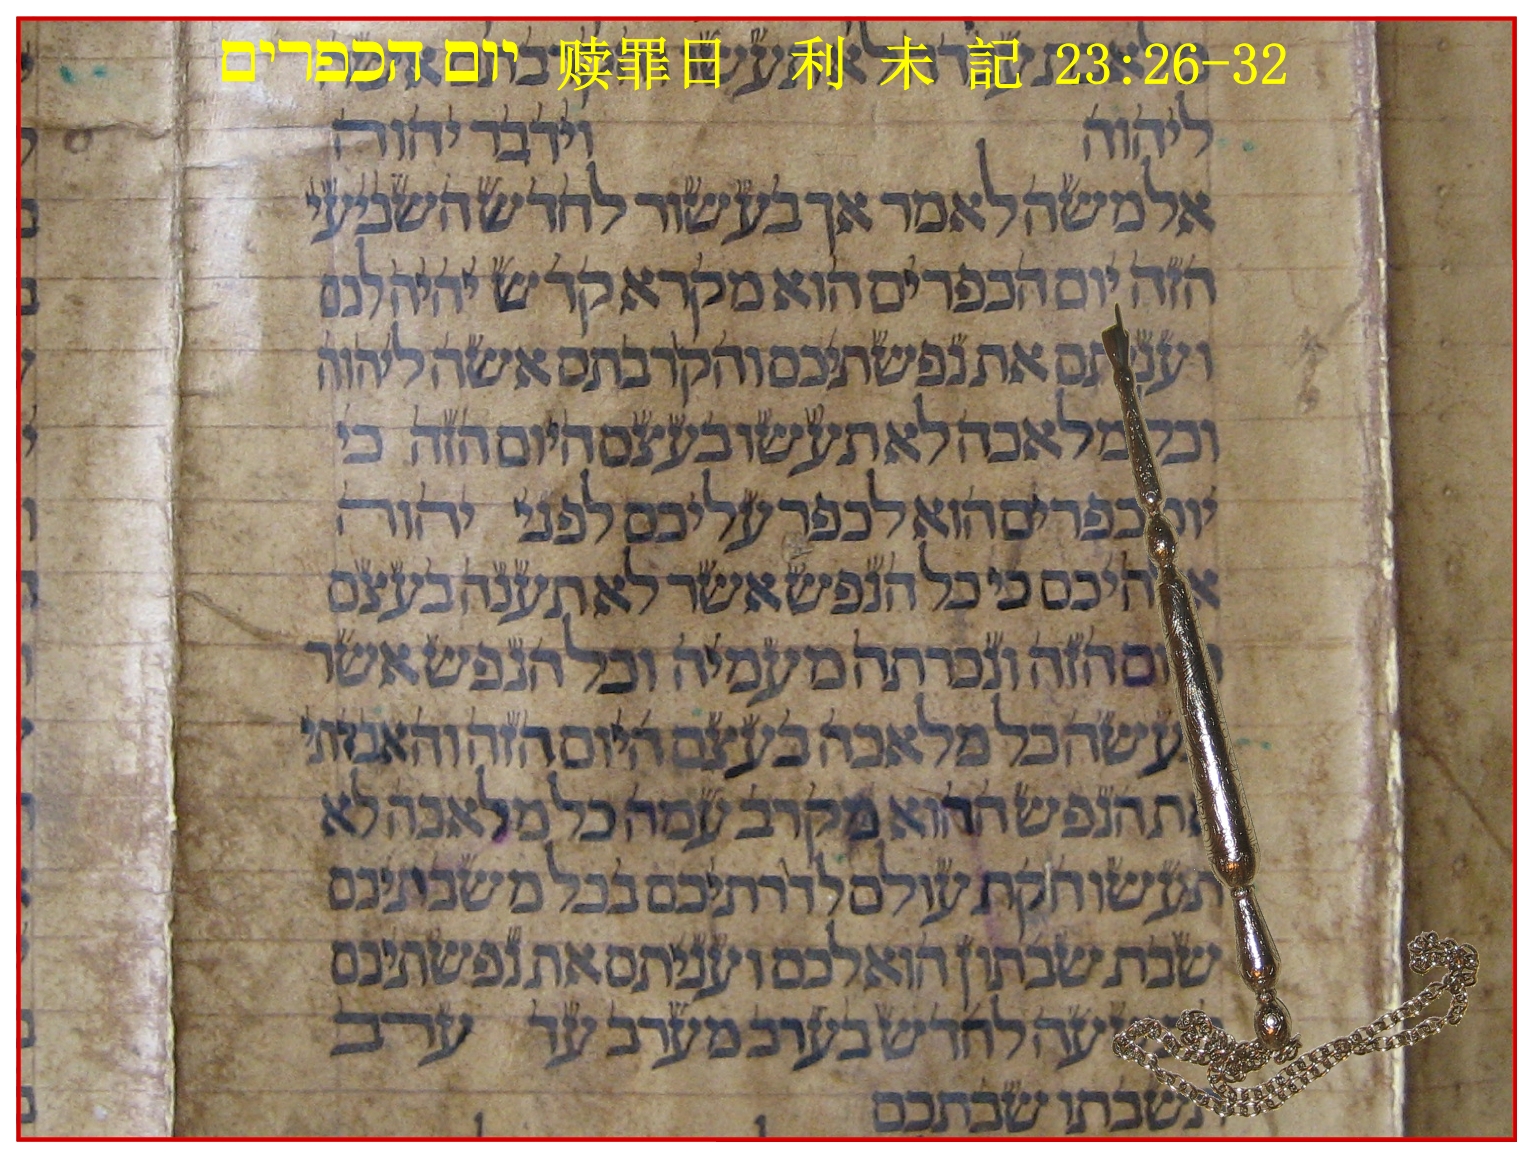 יום הכפרים 赎罪日 利未記 23:26-32
ליהוה וידבר יהוה
אל משה לאמר אך בעשור לחדש השביעי
הזה יום הכפרים הוא מקרא קדש יהיה לכם
ועניתם את נפשתיכם והקרבתם אשה ליהוה
וכל מלאכה לא תעשו בעצם היום הזה כי
יום כפרים הוא לכפר עליכם לפני יהוה
אלהיכם כי כל הנפש אשר לא תענה בעצם
היום הזה ונכרתה מעמיה וכל הנפש אשר
תעשה כל מלאכה בעצם היום הזה והאבדתי
את הנפש ההוא מקרב עמה כל מלאכה לא
תעשו חקת עולם לדרתיכם בכל משבתיכם
שבת שבתון הוא לכם ועניתם את נפשתיכם
לחדש בערב מערב עד ערב
תשבתו שבתכם